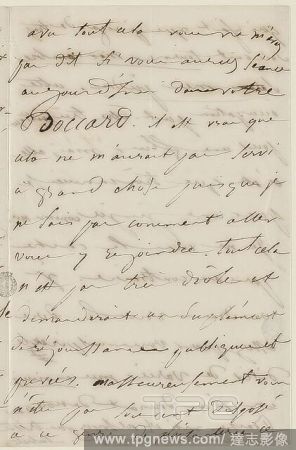 avec tout cela vous ne m'avez
pas dit si vous auriez séance
aujourd'hui dans votre
Boccard. il est vrai que
cela ne m'aurait pas servi
a grand chose puisque je
ne sais pas comment aller
vous y rejoindre. tout cela
n'est pas très drôle et
demanderait un supplément
de réjouissances publiques et
privées. malheureusement vous
n'êtes pas souvent disposé
a ce genre
TPG
www.tpgnews.com / 達志影像